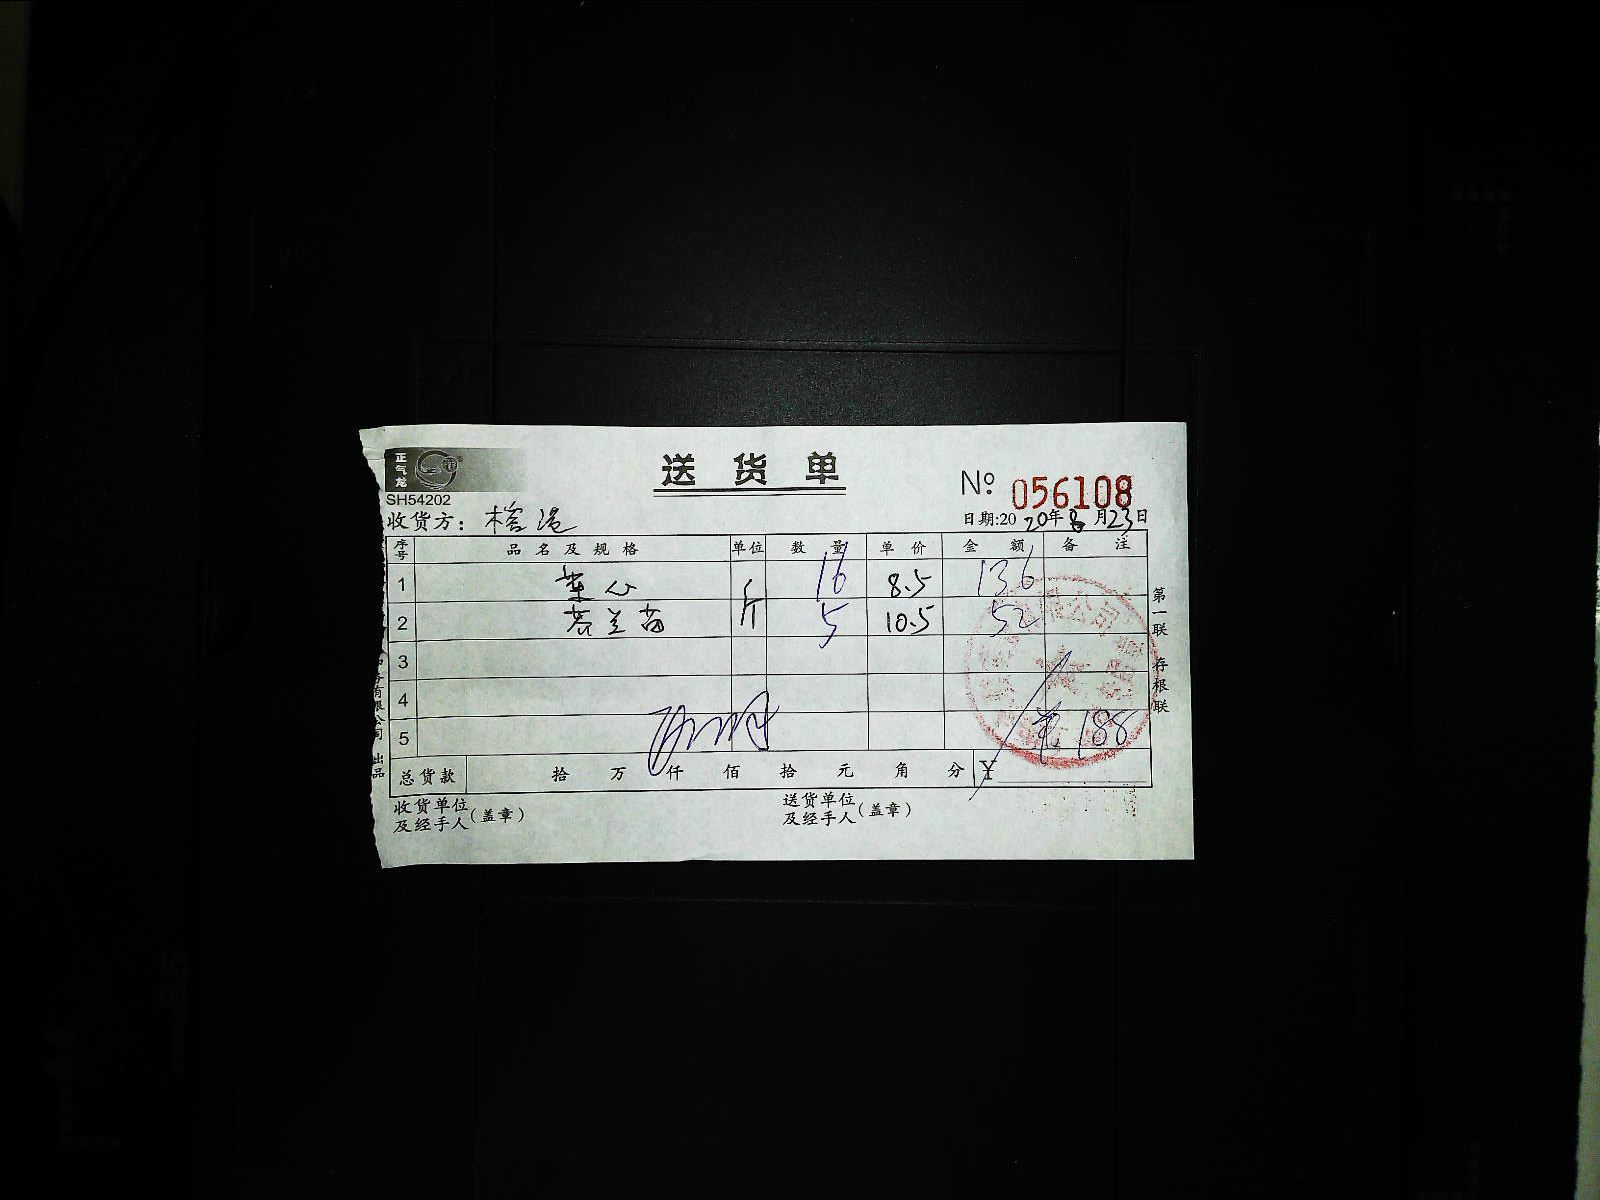 正气龙
送货单
SH54202
№ 056108
收货方: 榕港
日期:2020年8月23日
序号 品名及规格 单位 数量 单价 金额 备注
1 菜心 斤 16 8.5 136
2 芥兰苗 斤 5 10.5 52
3
4
5 188
总货款 拾 万 仟 佰 拾 元 角 分 ¥
收货单位及经手人(盖章)
送货单位及经手人(盖章)
第一联 存根联
务有限公司 出品